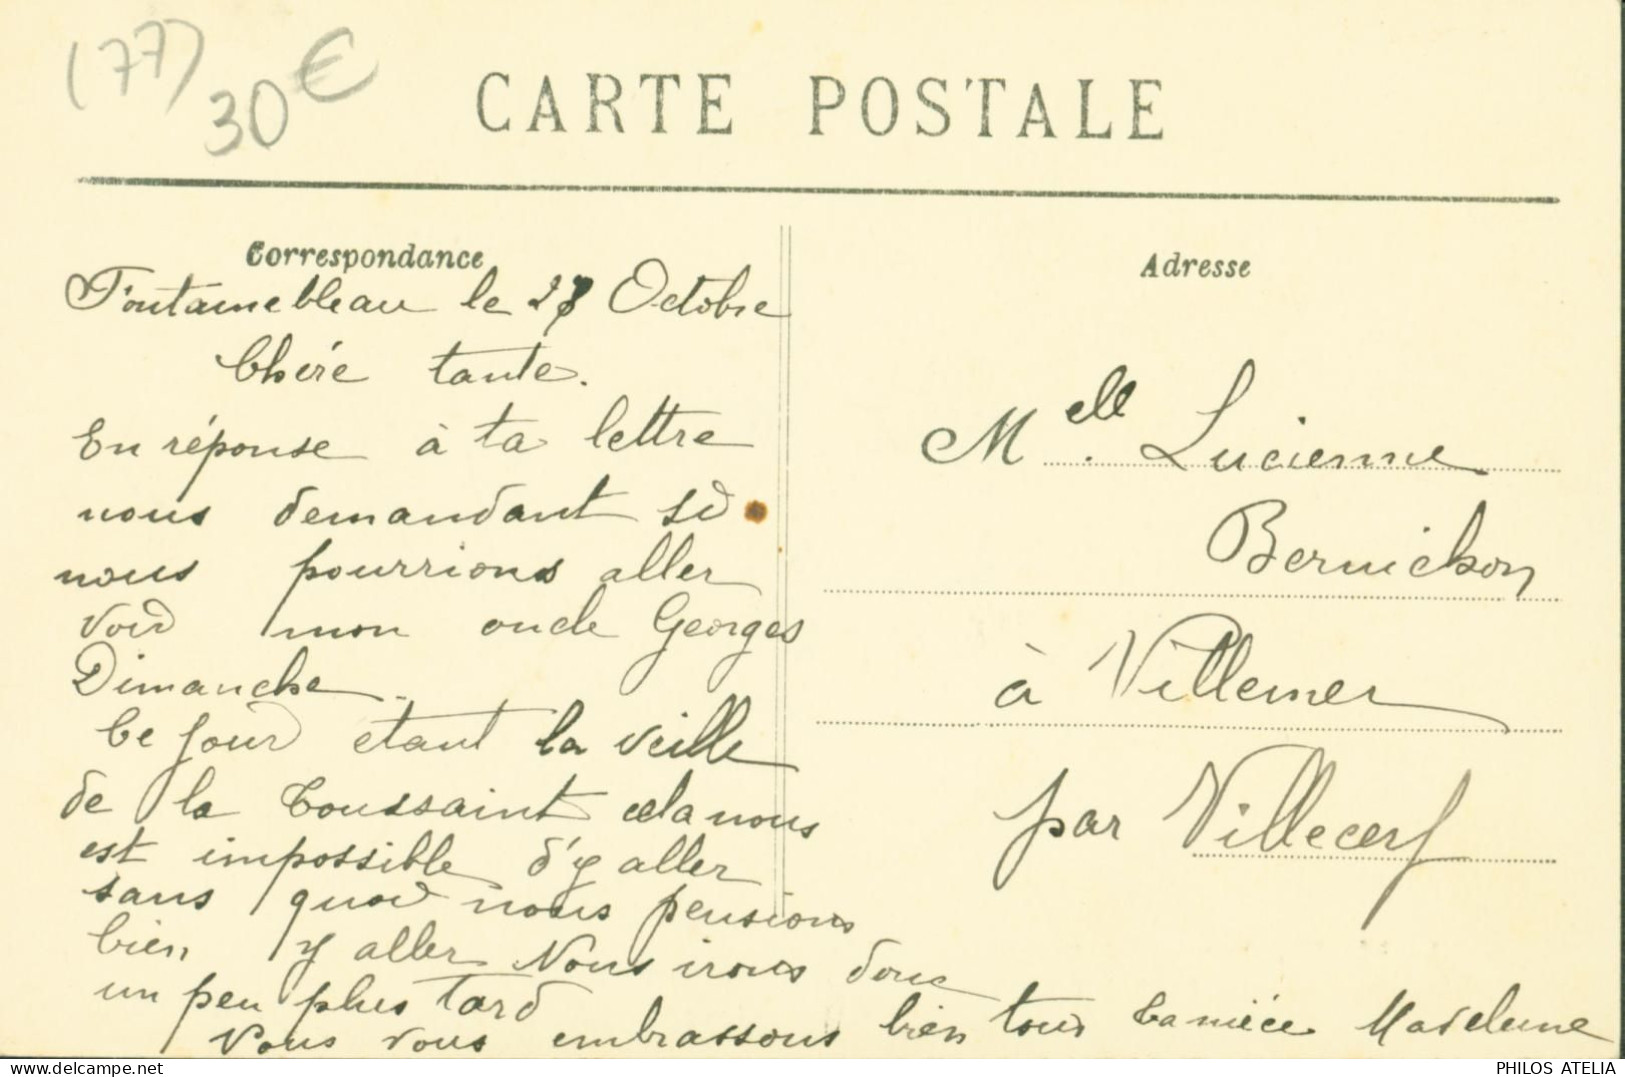 (77) 30€
CARTE POSTALE
Correspondance
Fontainebleau le 27 Octobre
Chère tante.
En réponse à ta lettre
nous demandant si
nous pourrions aller
voir mon oncle Georges
Dimanche.
Ce jour étant la veille
de la Toussaint cela nous
est impossible d'y aller
sans quoi nous pensions
bien y aller Nous irons donc
un peu plus tard
Nous vous embrassons bien tous Ta nièce Madeleine
Adresse
Melle Lucienne
Bernichon
à Villemer
par Villecerf
PHILOS ATELIA